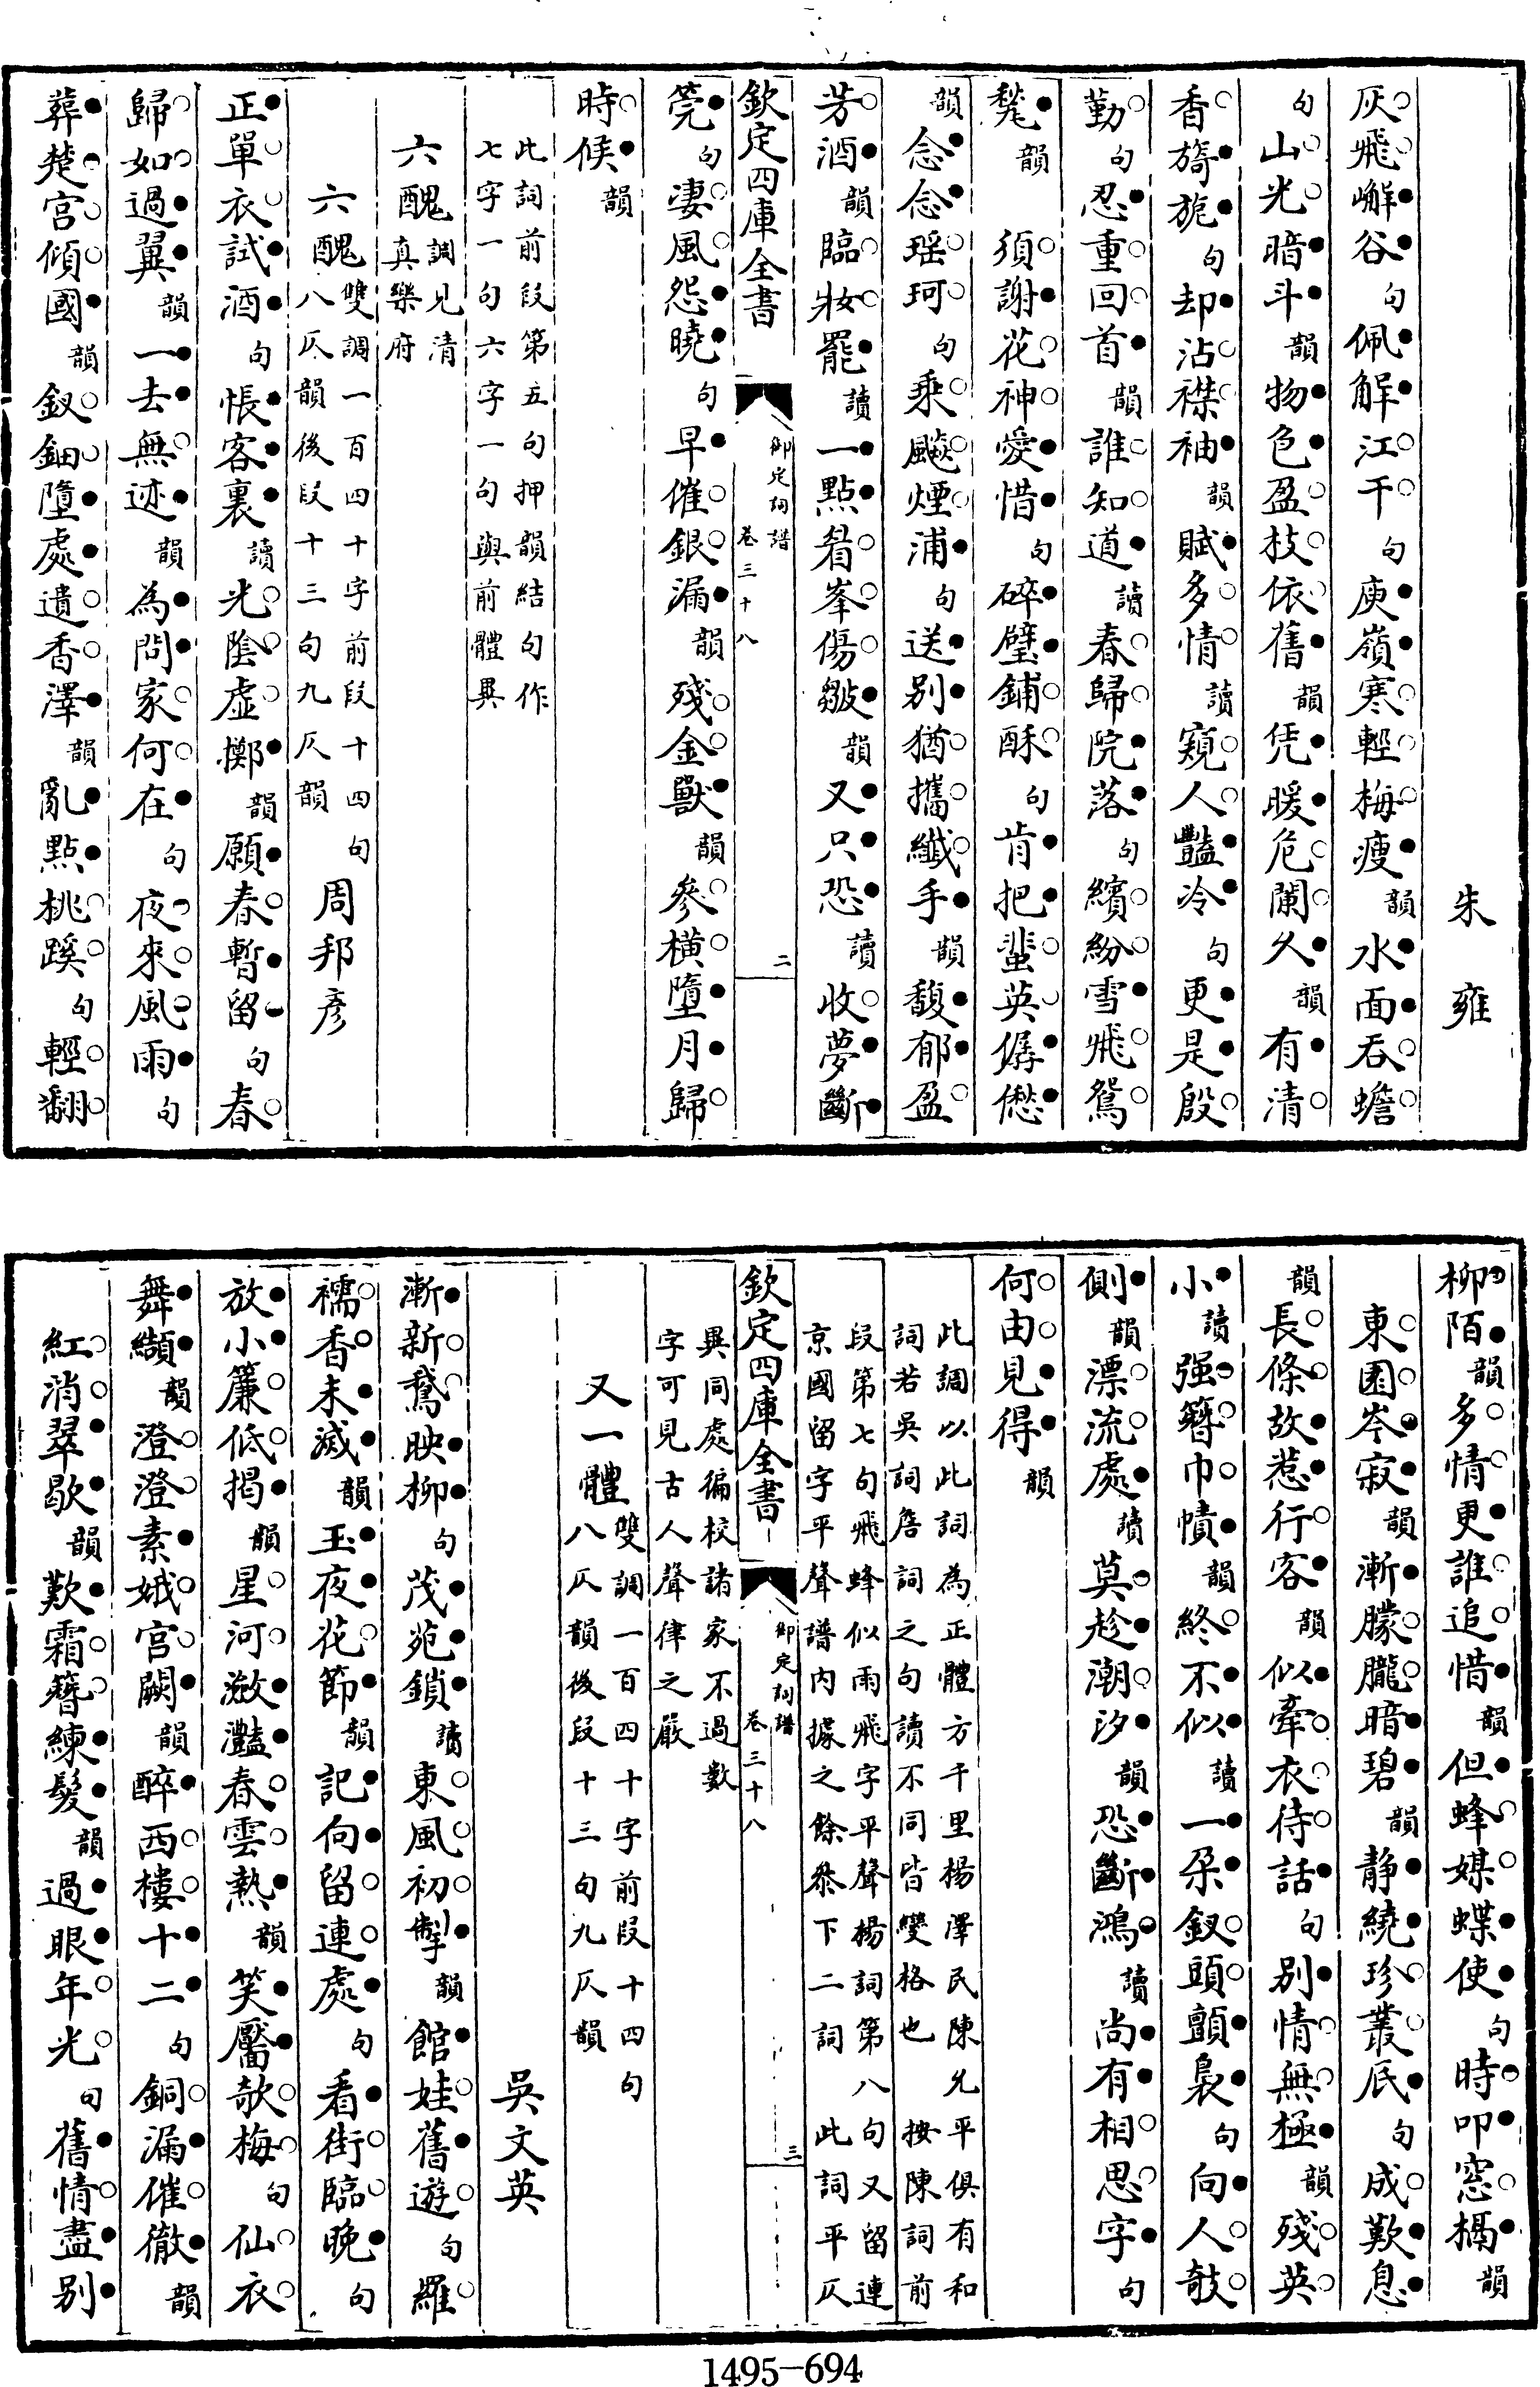 朱雍
灰飛嶰谷句佩解江干句庾嶺寒輕梅瘦韻水面吞蟾
句山光暗斗韻物色盈枝依舊韻凭暖危闌久韻有清
香旖旎句却沾襟袖韻賦多情讀窺人豔冷句更是殷
勤句忍重回首韻誰知道讀春歸院落句繽紛雪飛鴛
甃韻 須謝花神愛惜句碎璧鋪酥句肯把蜚英僝僽
韻念念瑶珂句乘飈煙浦句送别猶攜纖手韻馥郁盈
芳酒韻臨妝罷讀一點眉峯傷皺韻又只恐讀收夢斷
欽定四庫全書 御定詞譜 卷三十八 二
筦句凄風怨曉句早催銀漏韻殘金獸韻參橫墮月歸
時候韻
此詞前段第五句押韻結句作
七字一句六字一句與前體異
六醜調見清
真樂府
六醜雙調一百四十字前段十四句
八仄韻後段十三句九仄韻 周邦彥
正單衣試酒句悵客裏讀光陰虛擲韻願春暫留句春
歸如過翼韻一去無迹韻為問家何在句夜來風雨句
葬楚宫傾國韻釵鈿墮處遺香澤韻亂點桃蹊句輕翻
柳陌韻多情更誰追惜韻但蜂媒蝶使句時叩窓槅韻
東園岑寂韻漸朦朧暗碧韻静繞珍叢底句成歎息
韻長條故惹行客韻似牽衣待話句别情無極韻殘英
小讀强簪巾幘韻終不似讀一朶釵頭顫裊句向人攲
側韻漂流處讀莫趁潮汐韻恐斷鴻讀尚有相思字句
何由見得韻
此調以此詞為正體方千里楊澤民陳允平俱有和
詞若吳詞詹詞之句讀不同皆變格也 按陳詞前
段第七句飛蜂似雨飛字平聲楊詞第八句又留連
京國留字平聲譜内據之餘叅下二詞 此詞平仄
異同處徧校諸家不過數
字可見古人聲律之嚴
欽定四庫全書 御定詞譜 卷三十八 三
又一體雙調一百四十字前段十四句
八仄韻後段十三句九仄韻
吳文英
漸新鵞映柳句茂苑鎖讀東風初掣韻館娃舊遊句羅
襦香未滅韻玉夜花節韻記向留連處句看街臨晚句
放小簾低揭韻星河瀲灩春雲熱韻笑靨欹梅句仙衣
舞纈韻澄澄素娥宫闕韻醉西樓十二句銅漏催徹韻
紅消翠歇韻歎霜簪練髮韻過眼年光句舊情盡别
1495-694